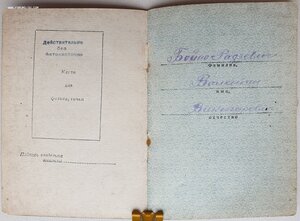 Действительно
без
фотокарточки
Место
для
фотокарточки
Подпись владельца
Бойно-Радзевич
фамилия,
Валентин
имя,
Викторович
отчество